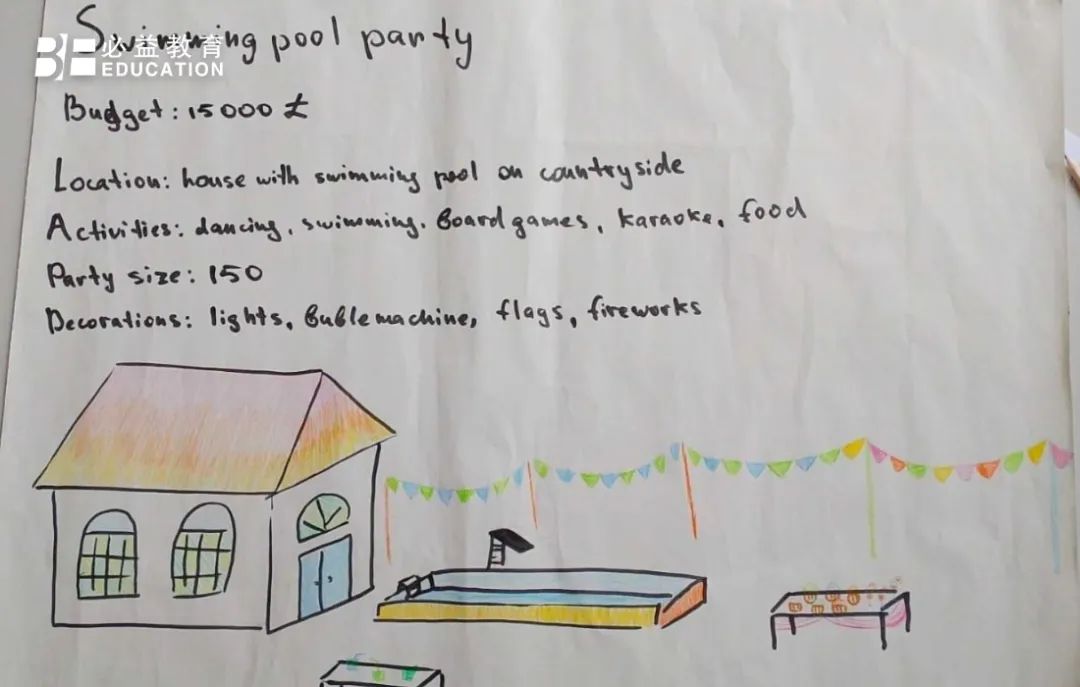 Swimming pool party
必益教育
EDUCATION
Budget: 15000 £
Location: house with swimming pool on countryside
Activities: dancing, swimming, Board games, karaoke, food
Party size: 150
Decorations: lights, Buble machine, flags, fireworks